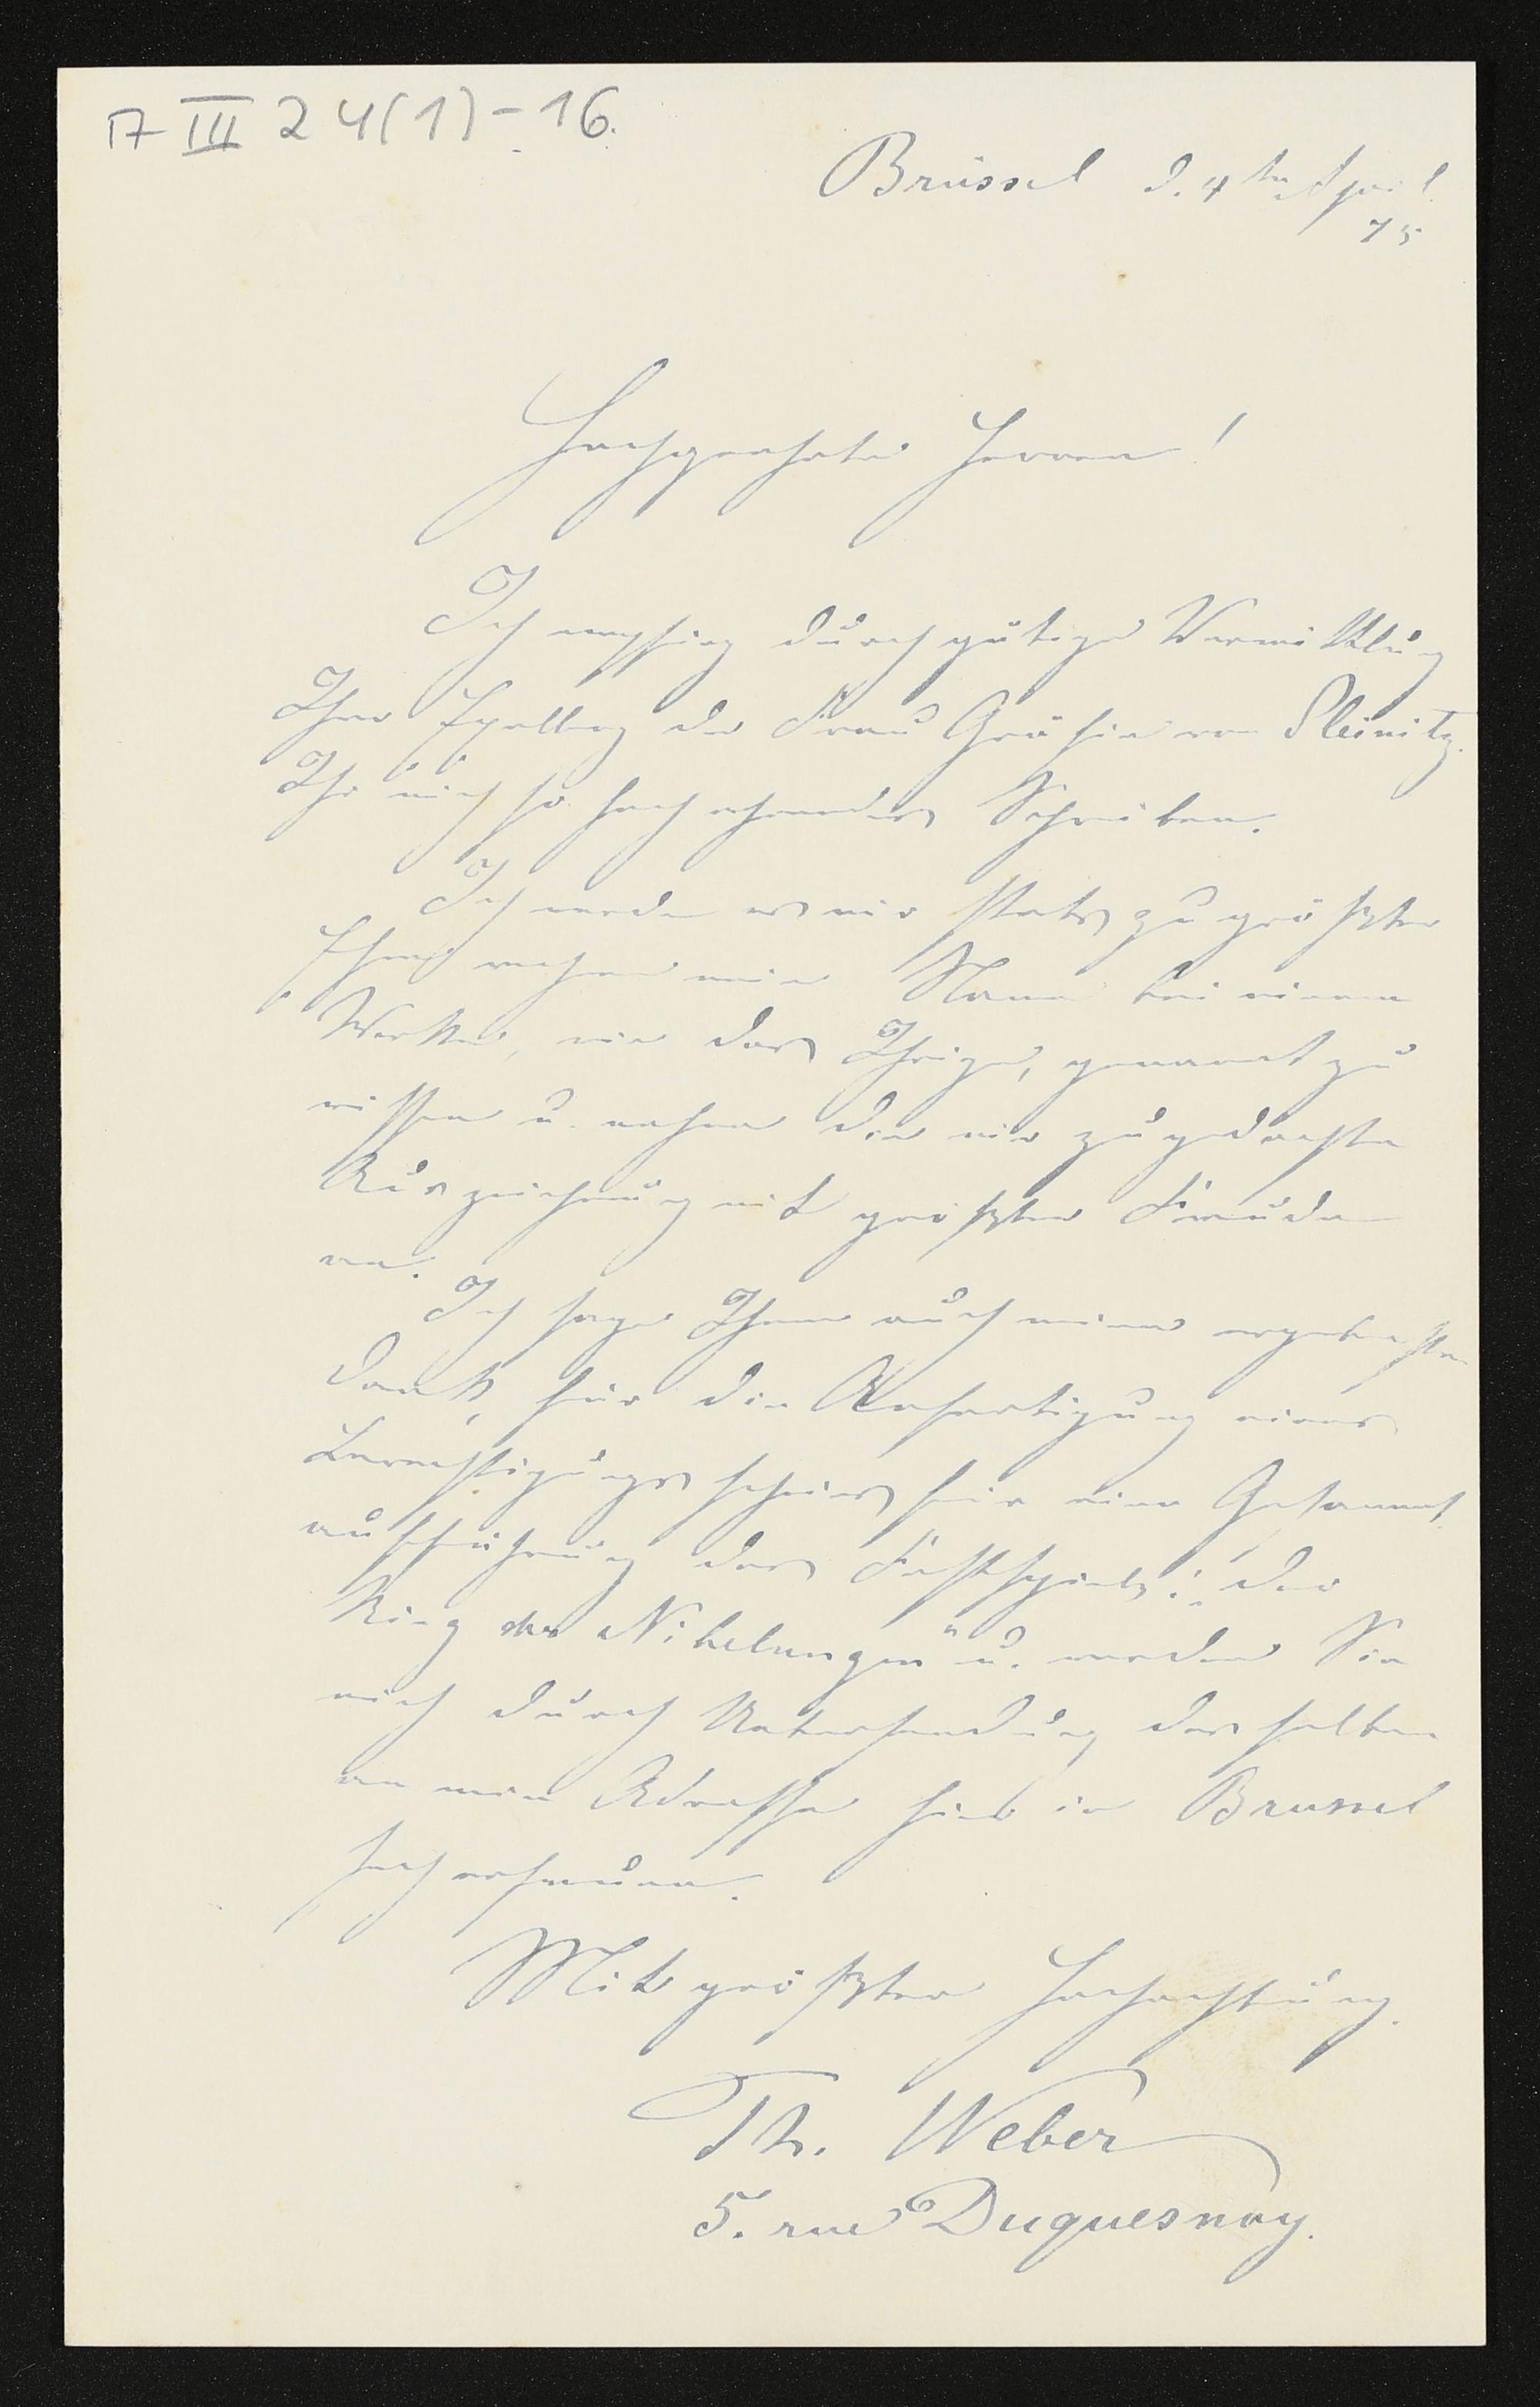 17 III 24(1)-16.
Brüssel d. 4ten April
75
Hochgeehrte Herren!
Ich empfing durch gütige Vermittlung
Ihrer der Frau Gräfin von Sleinitz
Ihr mich so hoch ehrendes Schreiben.
Ich werde es mir stets zu größter
Ehre meinen Namen bei einem
Werke, wie das Ihrige, genannt zu
wissen u. nehme die mir zugedachte
Auszeichnung mit größter Freude
an.
Ich sage Ihnen auch meinen ergebensten
Dank, für die Anfertigung eines
Berechtigungsscheines für eine Gesammt
aufführung des Festspiels: „der
Ring der Nibelungen" u. werden Sie
mich durch Übersendung desselben
an meine Adresse hier in Brussel
hoch erfreuen.
Mit größter Hochachtung.
Th. Weber
5. rue Duquesnoy.